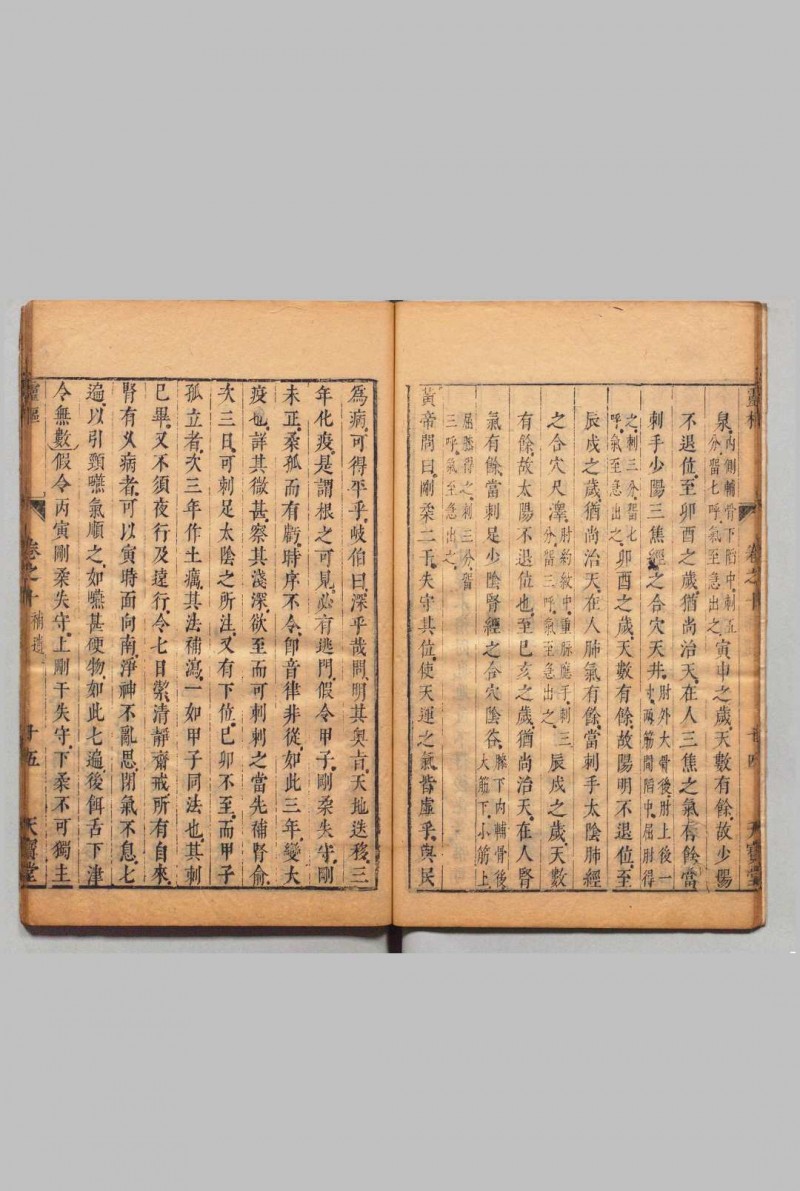 泉內側輔骨下陷中刺五分留七呼氣至急出之寅申之歲天數有餘故少陽
不退位至卯酉之歲猶尚治天在人三焦之氣有餘當
刺手少陽三焦經之合穴天井肘外大骨後肘上後一寸兩筋間陷中屈肘得
之刺三分留七呼氣至急出之卯酉之歲天數有餘故陽明不退位至
辰戌之歲猶尚治天在人肺氣有餘當刺手太陰肺經
之合穴尺澤肘約紋中動脉應手刺三分留三呼氣至急出之辰戌之歲天數
有餘故太陽不退位也至巳亥之歲猶尚治天在人腎
氣有餘當刺足少陰腎經之合穴陰谷膝下內輔骨後大筋下小筋上
屈膝得之刺三分留三呼氣至急出之
黃帝問曰剛柔二干失守其位使天運之氣皆虛乎與民
為病可得平乎岐伯曰深乎哉問明其奧旨天地迭移三
年化疫是謂根之可見必有逃門假令甲子剛柔失守剛
未正柔孤而有虧時序不令即音律非從如此三年變大
疫也詳其微甚察其淺深欲至而可刺刺之當先補腎俞
次三日可刺足太陰之所注又有下位己卯不至而甲子
孤立者次三年作土癘其法補瀉一如甲子同法也其刺
已畢又不須夜行及遠行令七日潔清靜齋戒所有自來
腎有久病者可以寅時面向南淨神不亂思閉氣不息七
遍以引頸嚥氣順之如嚥甚硬物如此七遍後餌舌下津
令無數假令丙寅剛柔失守上剛干失守下柔不可獨主
靈樞 卷之十 補遺 十五 天寶堂